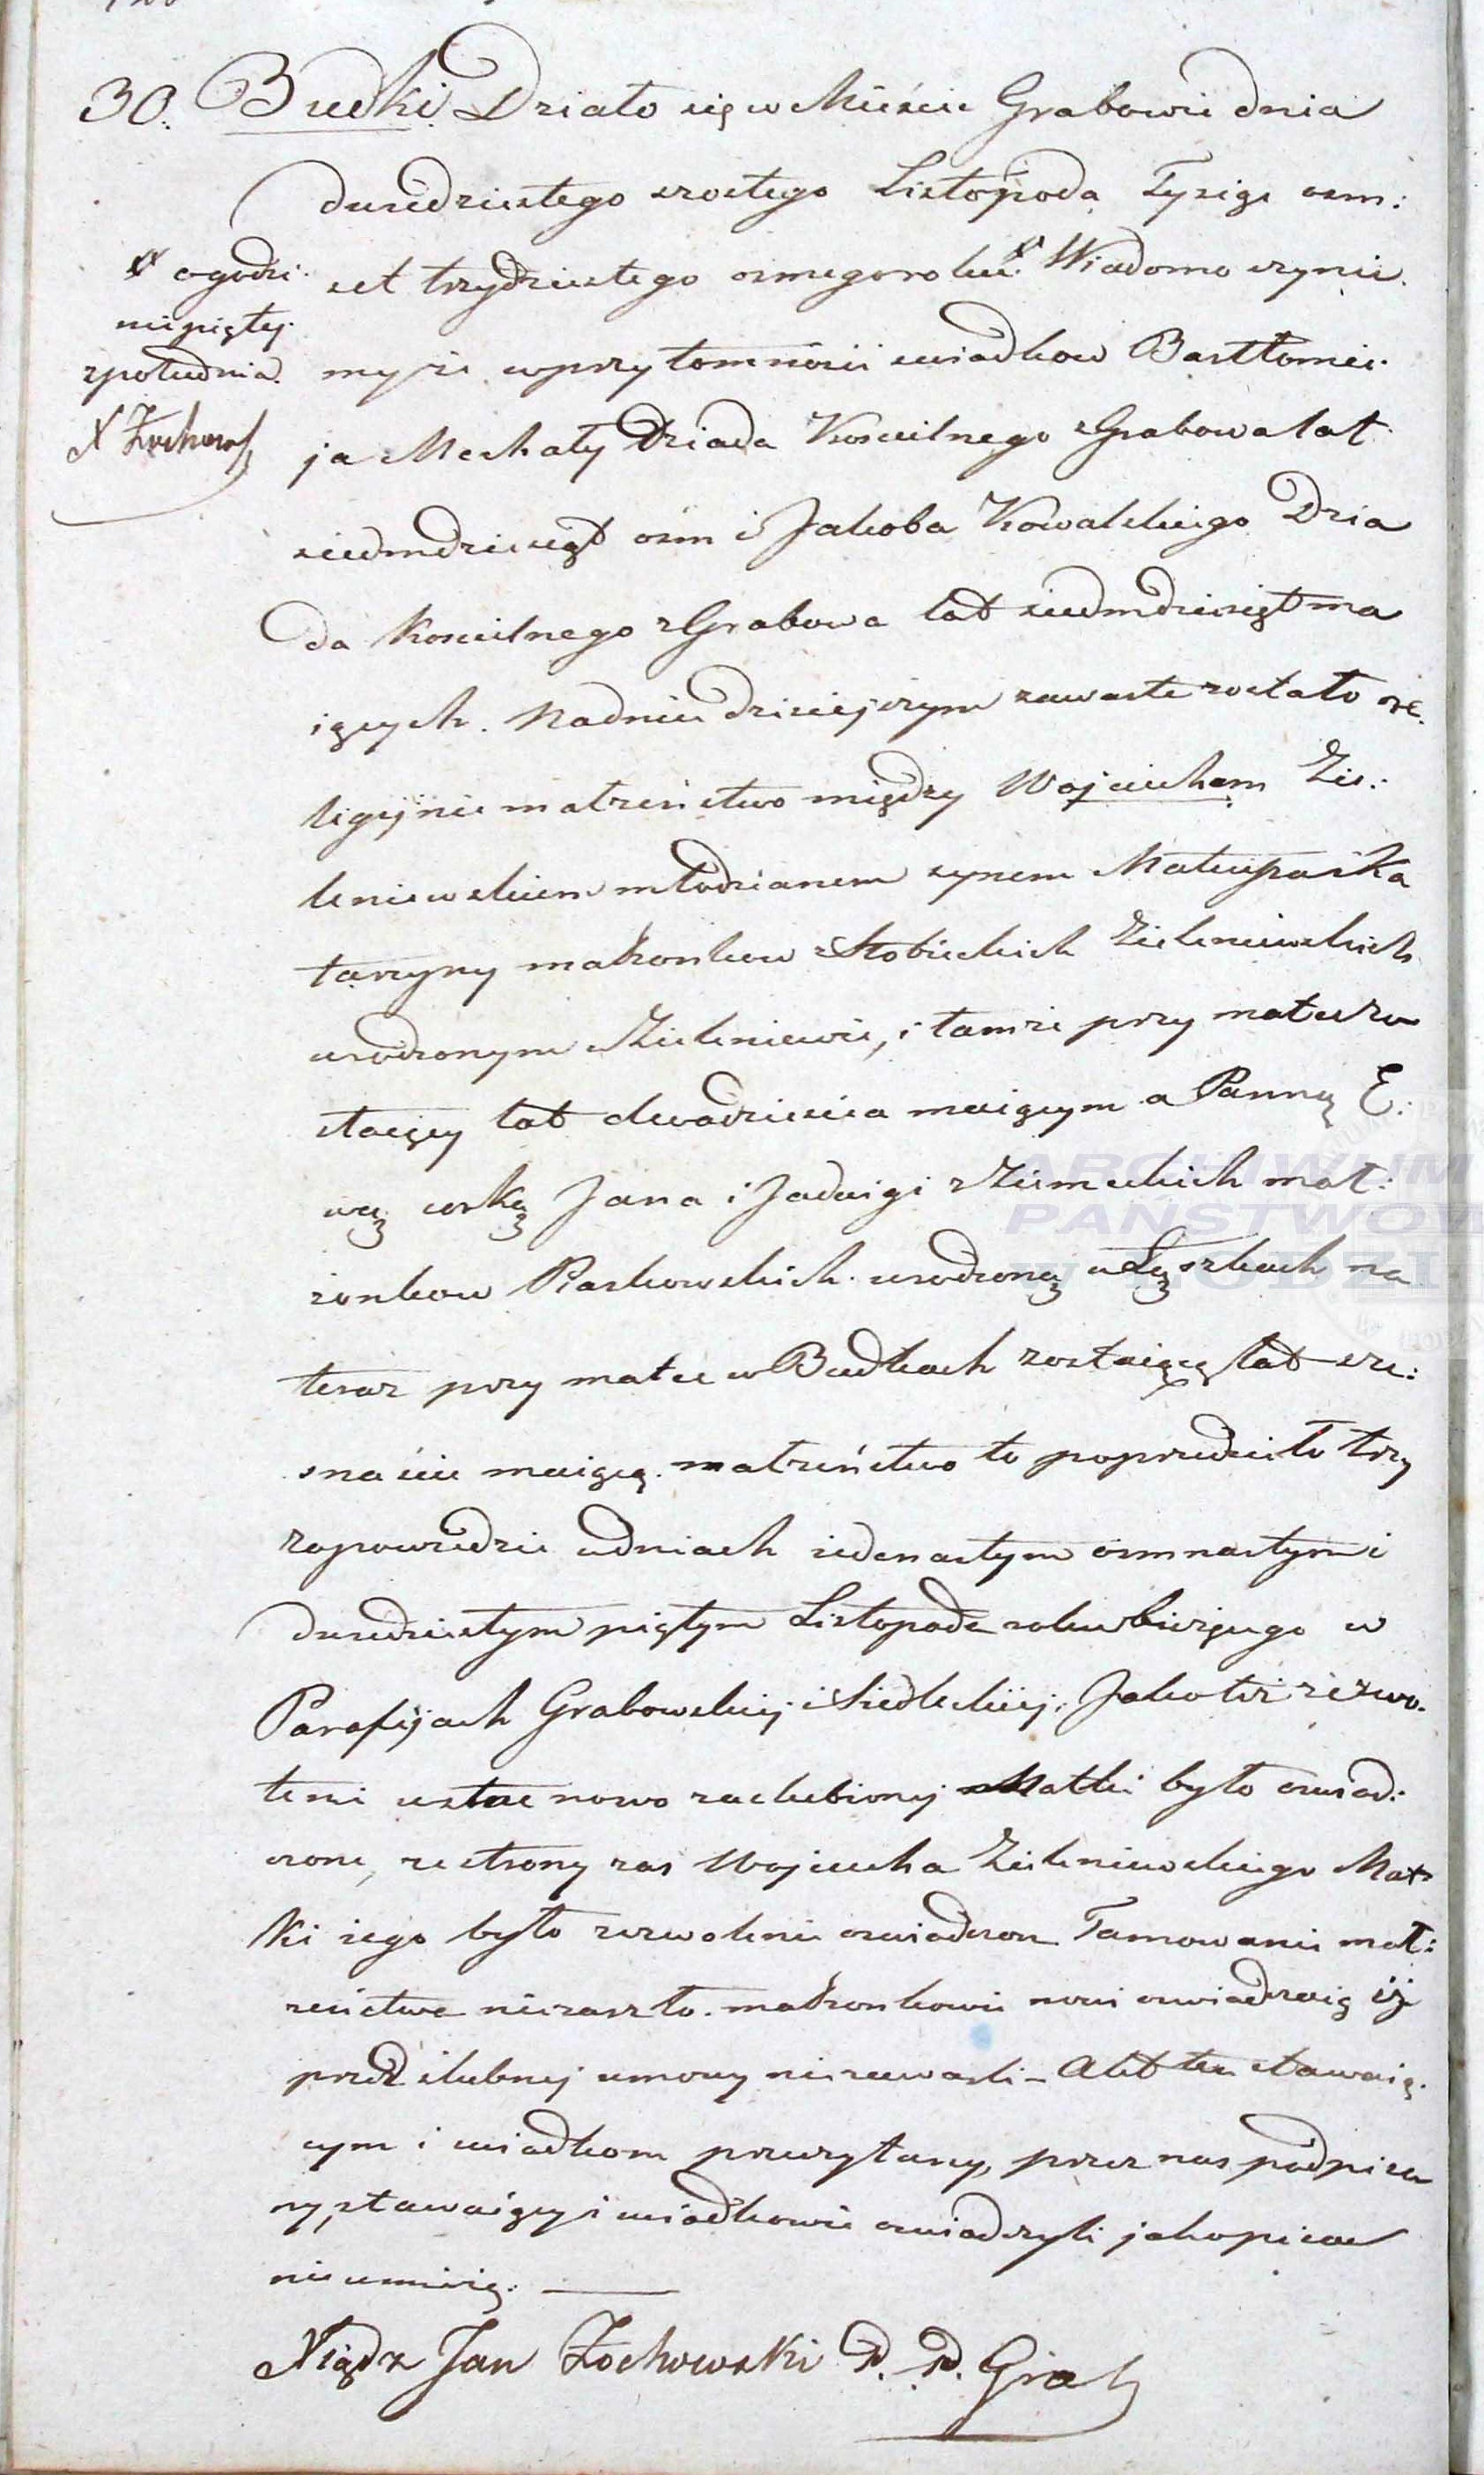 30. Budki. Działo się w Mieście Grabowie dnia
dwudziestego szostego Listopada Tysiąc osm:
set trzydziestego osmego roku. Wiadomo czynie.
o godzi:
nie piątey
z południa.
X Żochows
my, że w przytomności swiadkow Bartłomie:
ja Mechały Dziada Koscielnego z Grabowa lat
siedmdziesiąt osm i Jakoba Kowalskiego Dzia
da Koscielnego z Grabowa lat siedmdziesiąt ma
iących. Na dniu dzisiejszym zawarte zostało re:
ligijnie małżeństwo między Wojciechem Zie:
leniewskiem młodzianem synem Mateusza i Ka
tarzyny małżonkow z Stobieckich Zieleniewskich
urodzonym w Zieleniewie, i tamże przy matce zo
staiący lat dwadzieścia maiącym a Panną E:
wą corką Jana i Jadwigi z Ziemeckich mał:
żonkow Piaskowskich urodzoną w Łęszkach na
teraz przy matce w Budkach zostaiącą lat sze:
snaście maiącą. małżeństwo to poprzedziło trzy
zapowiedzie w dniach iedenastym osmnastym i
dwudziestym piątym Listopada roku bieżącego w
Parafijach Grabowskiej i Siedleckiej. Jako też zezwo:
lenie ustne nowo zaslubionej Matki było oswiad:
czone, ze strony zas Wojciecha Zieleniewskiego Mat
ki iego było zezwolenie oswiadczon Tamowanie mał:
żeństwa nie zaszło. małżonkowie nowi oswiadczaią iż
przed slubnej umowy nie zawarli – Akt ten stawaią:
cym i swiadkom przeczytany, przez nas podpisa
ny, stawaiący i swiadkowie oswiadczyli jako pisać
nie umieią.
Xiądz Jan Żochowski P. P. Grab
ARCHIWUM
PAŃSTWOW
W ŁODZI